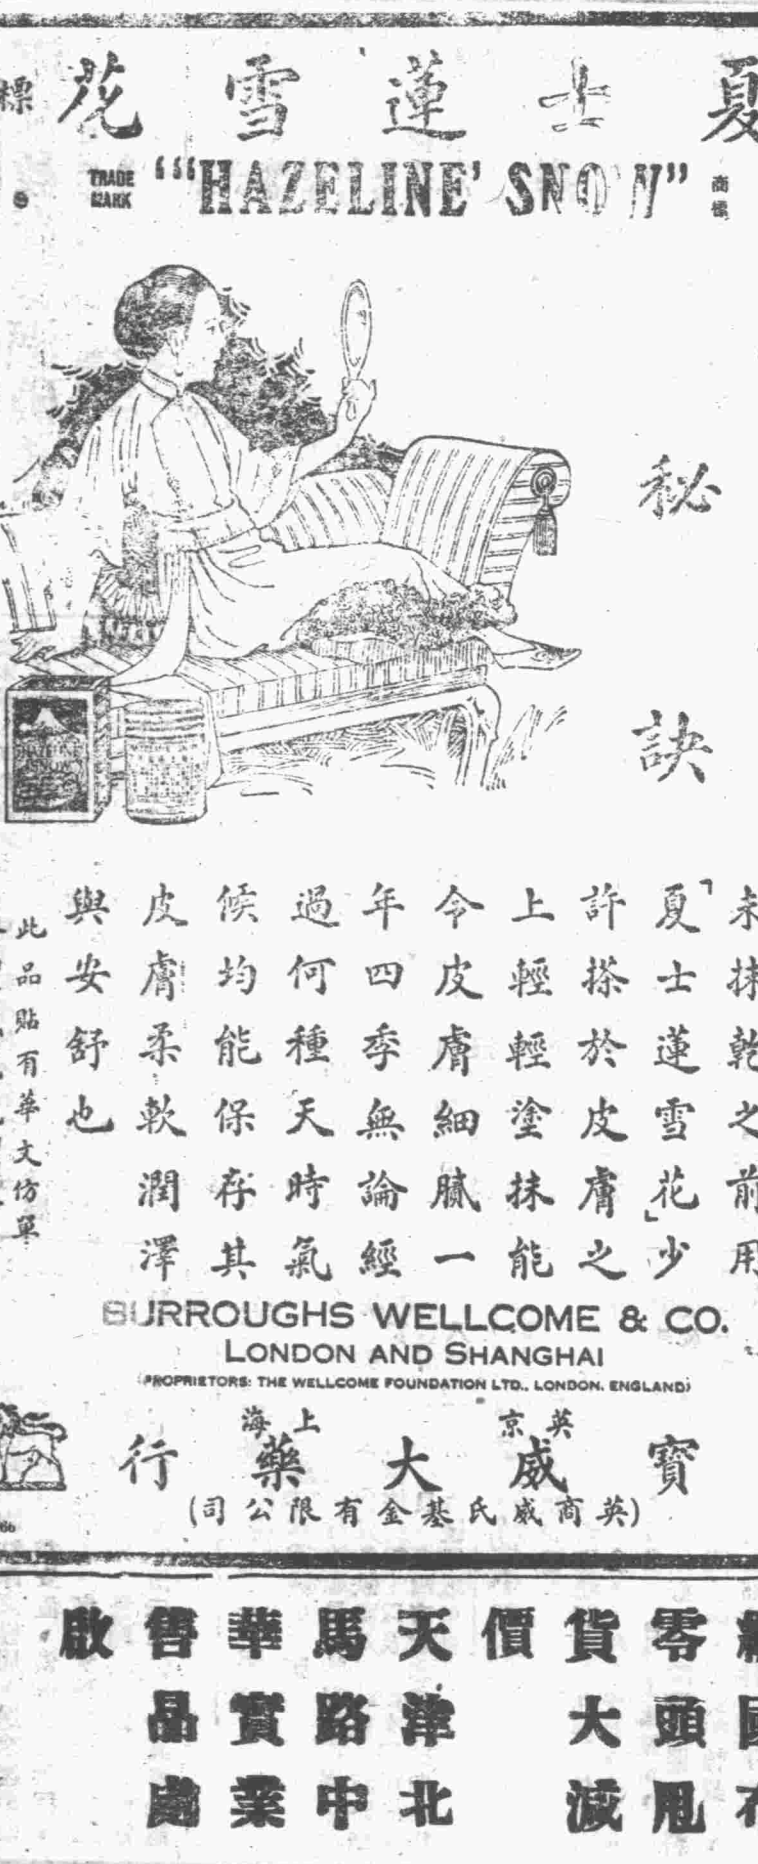 夏士蓮雪花
標
TRADE MARK
"'HAZELINE' SNOW"
商標
秘訣
HAZELINE SNOW
未抹乾之前用
「夏士蓮雪花」少
許搽於皮膚之
上輕輕塗抹能
令皮膚細膩一
年四季無論經
過何種天時氣
候均能保存其
皮膚柔軟潤澤
與安舒也
此品貼有華文仿單
BURROUGHS WELLCOME & CO.
LONDON AND SHANGHAI
(PROPRIETORS: THE WELLCOME FOUNDATION LTD., LONDON, ENGLAND)
英京 上海
寶威大藥行
(英商威氏基金有限公司)
66
零頭甩
貨大減
價
天津北
馬路中
華實業
售品處
啟